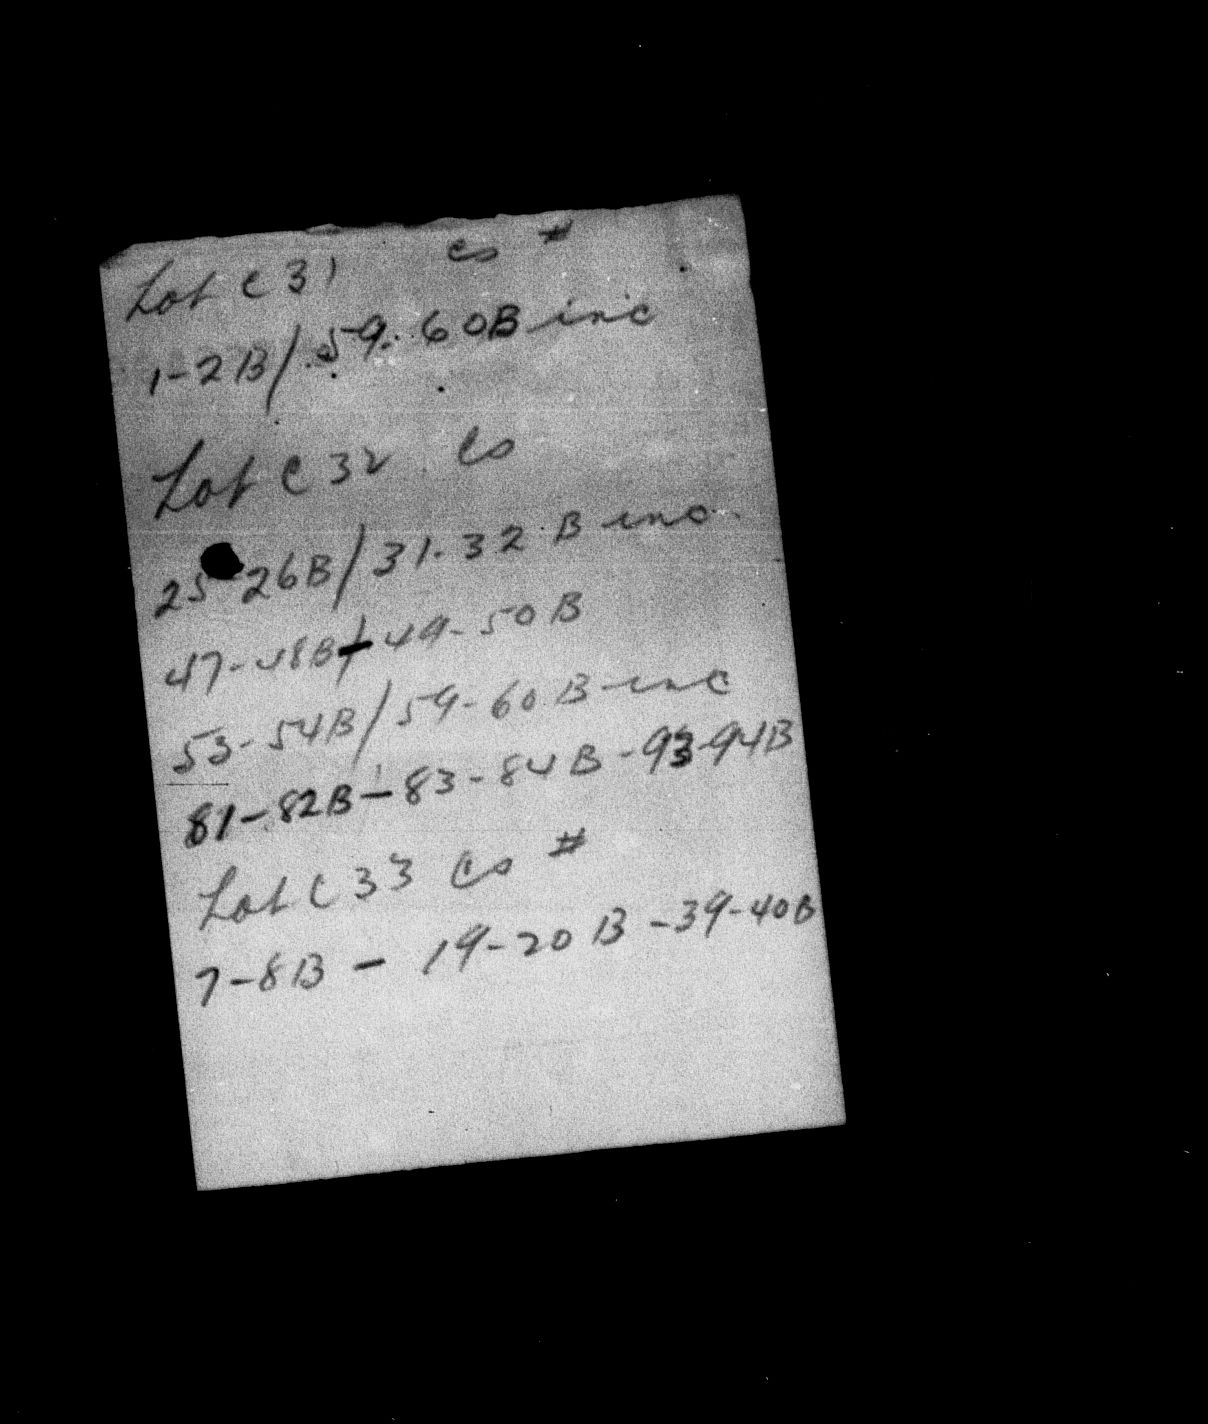 Lot C 31 Cs #
1-2B/59-60B inc
Lot C 32 Cs
25-26B/31-32 B inc
47-48B-49-50B
53-54B/59-60 B inc
81-82B-83-84B-93-94B
Lot C 33 Cs #
7-8B - 19-20B -39-40B